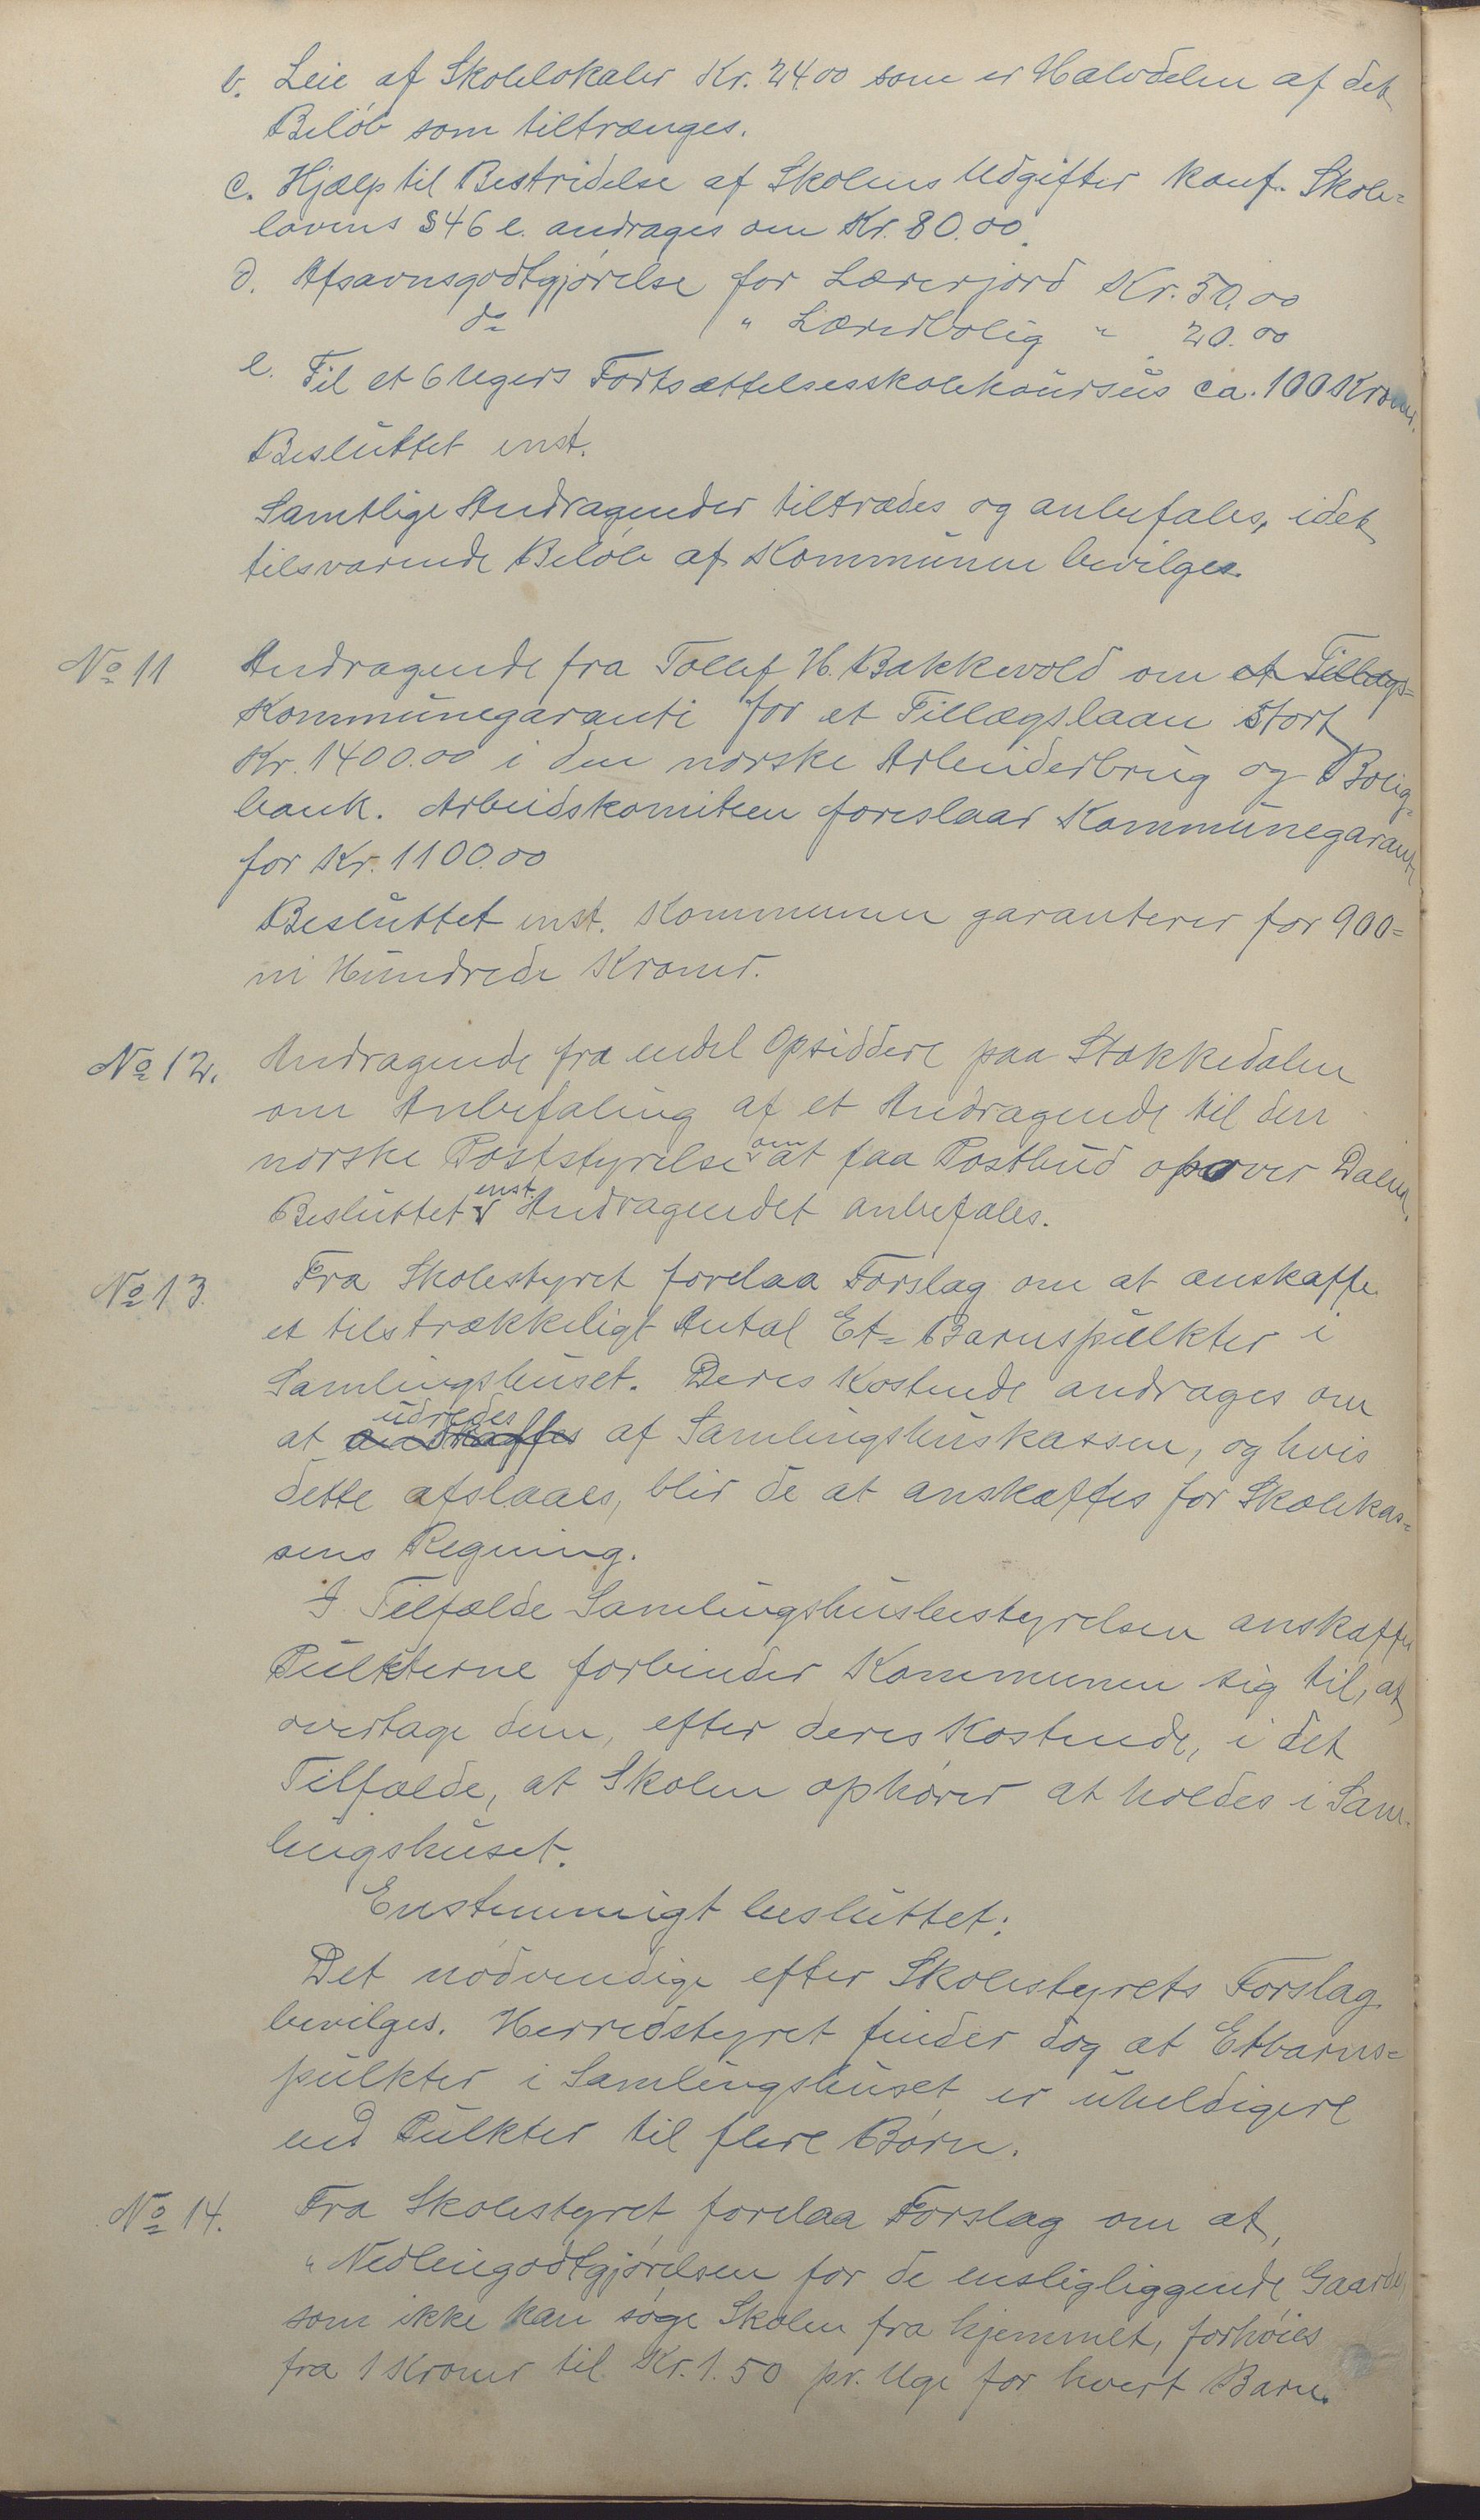 b. Leie af Skolelokaler Kr. 24.00 som er Halvdelen af det
Beløb som tiltrænges.
c. Hjælp til Bestridelse af Skolens Udgifter konf. Skole-
lovens § 46 e. andrages om Kr. 80.00.
d. Afsavnsgodtgjørelse for Lærerjord Kr. 50.00
do " Lærerbolig " 20.00
e. Til et 6 Ugers Fortsættelsesskolekoursus ca. 100 Kroner.
Besluttet enst.
Samtlige Andragender tiltrædes og anbefales, idet
tilsvarende Beløb af Kommunen bevilges.
No 11 Andragende fra Tollef H. Bakkevold om et Tillægs-
Kommunegaranti for et Tillægslaan stort
Kr. 1400.00 i den norske Arbeiderbrug og Bolig-
bank. Arbeidskomiteen foreslaar Kommunegaranti
for Kr. 1100.00
Besluttet enst. Kommunen garanterer for 900=
ni Hundrede Kroner.
No 12. Andragende fra endel Opsiddere paa Stokkedalen
om Anbefaling af et Andragende til den
norske Poststyrelse om at faa Postbud opover Dalen.
Besluttet enst. Andragendet anbefales.
No 13. Fra Skolestyret forelaa Forslag om at anskaffe
et tilstrækkeligt Antal Et-Barnspulkter i
Samlingshuset. Deres Kostende andrages om
at anskaffes udredes af Samlingshuskassen, og hvis
dette afslaaes, blir de at anskaffes for Skolekas-
sens Regning.
I Tilfælde Samlingshusbestyrelsen anskaffer
Pulkterne forbinder Kommunen sig til, at
overtage dem, efter deres Kostende, i det
Tilfælde, at Skolen ophører at holdes i Sam-
lingshuset.
Enstemmigt besluttet:
Det nødvendige efter Skolestyrets Forslag
bevilges. Herredstyret finder dog at Etbarns-
pulkter i Samlingshuset er uheldigere
end Pulkter til flere Børn.
No 14. Fra Skolestyret forelaa Forslag om at,
"Nedleiegodtgjørelsen for de ensligliggende Gaarde,
som ikke kan søge Skolen fra hjemmet, forhøies
fra 1 Kroner til Kr. 1.50 pr. Uge for hvert Barn.